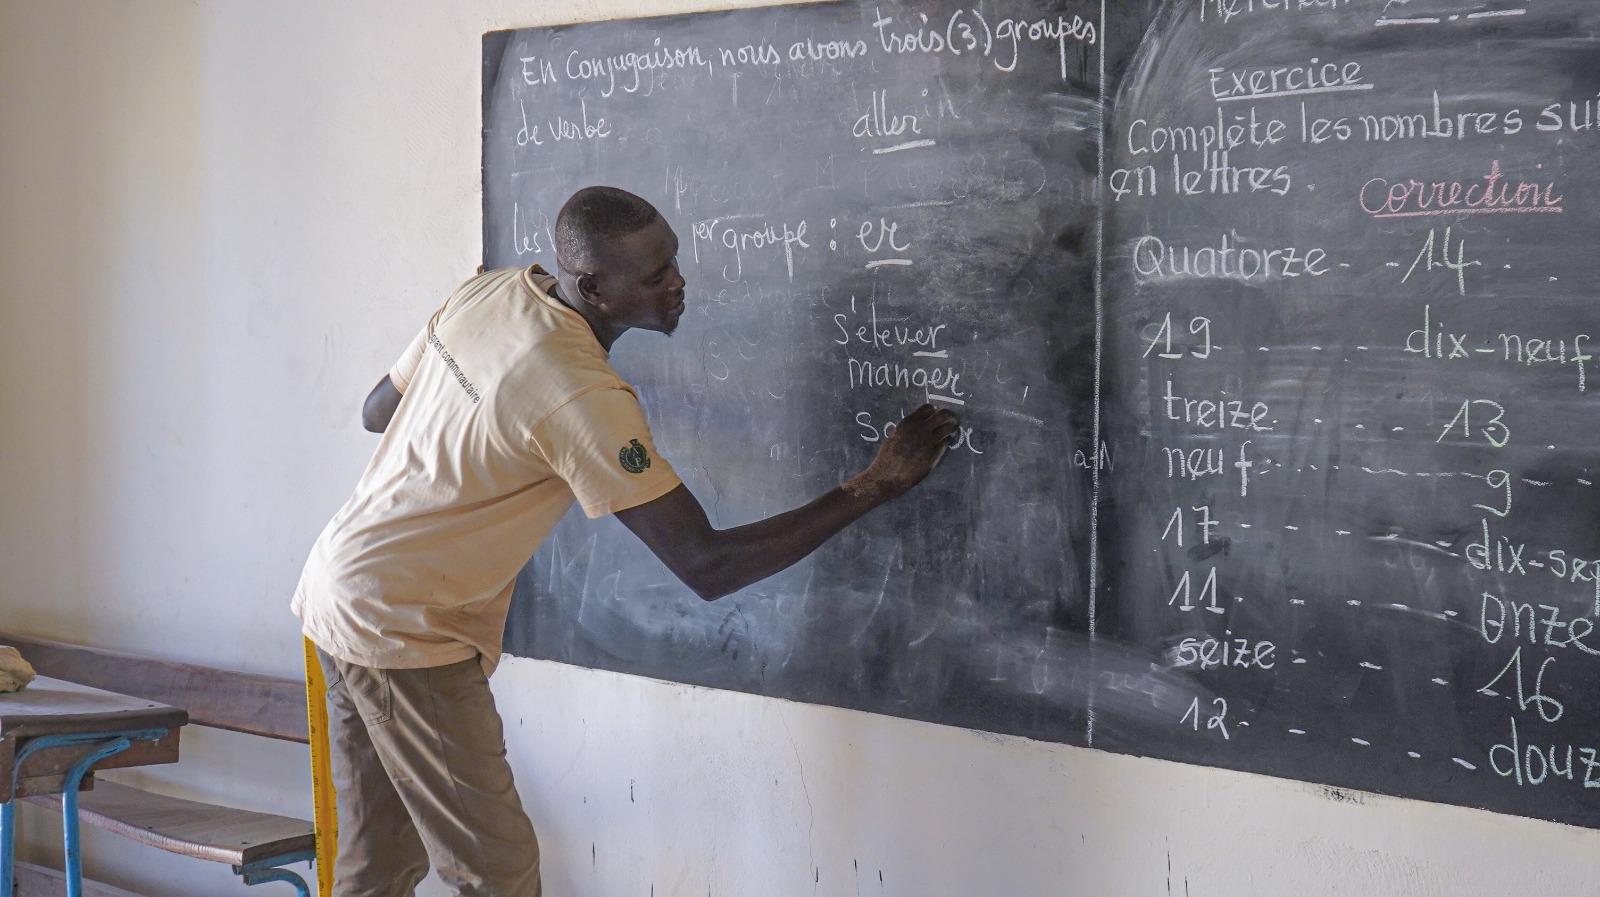 En Conjugaison, nous avons trois (3) groupes
de verbe
aller
les
1er groupe : er
s'élever
manger
Exercice
Complète les nombres
en lettres.
Correction
Quatorze - - 14 - .
19 - - - - dix-neuf
treize . . - - 13 .
neuf - - - - 9 - -
17 - - - - dix-
11 - - - - Onze
seize - - - - 16
12 - - - - -
communautaire